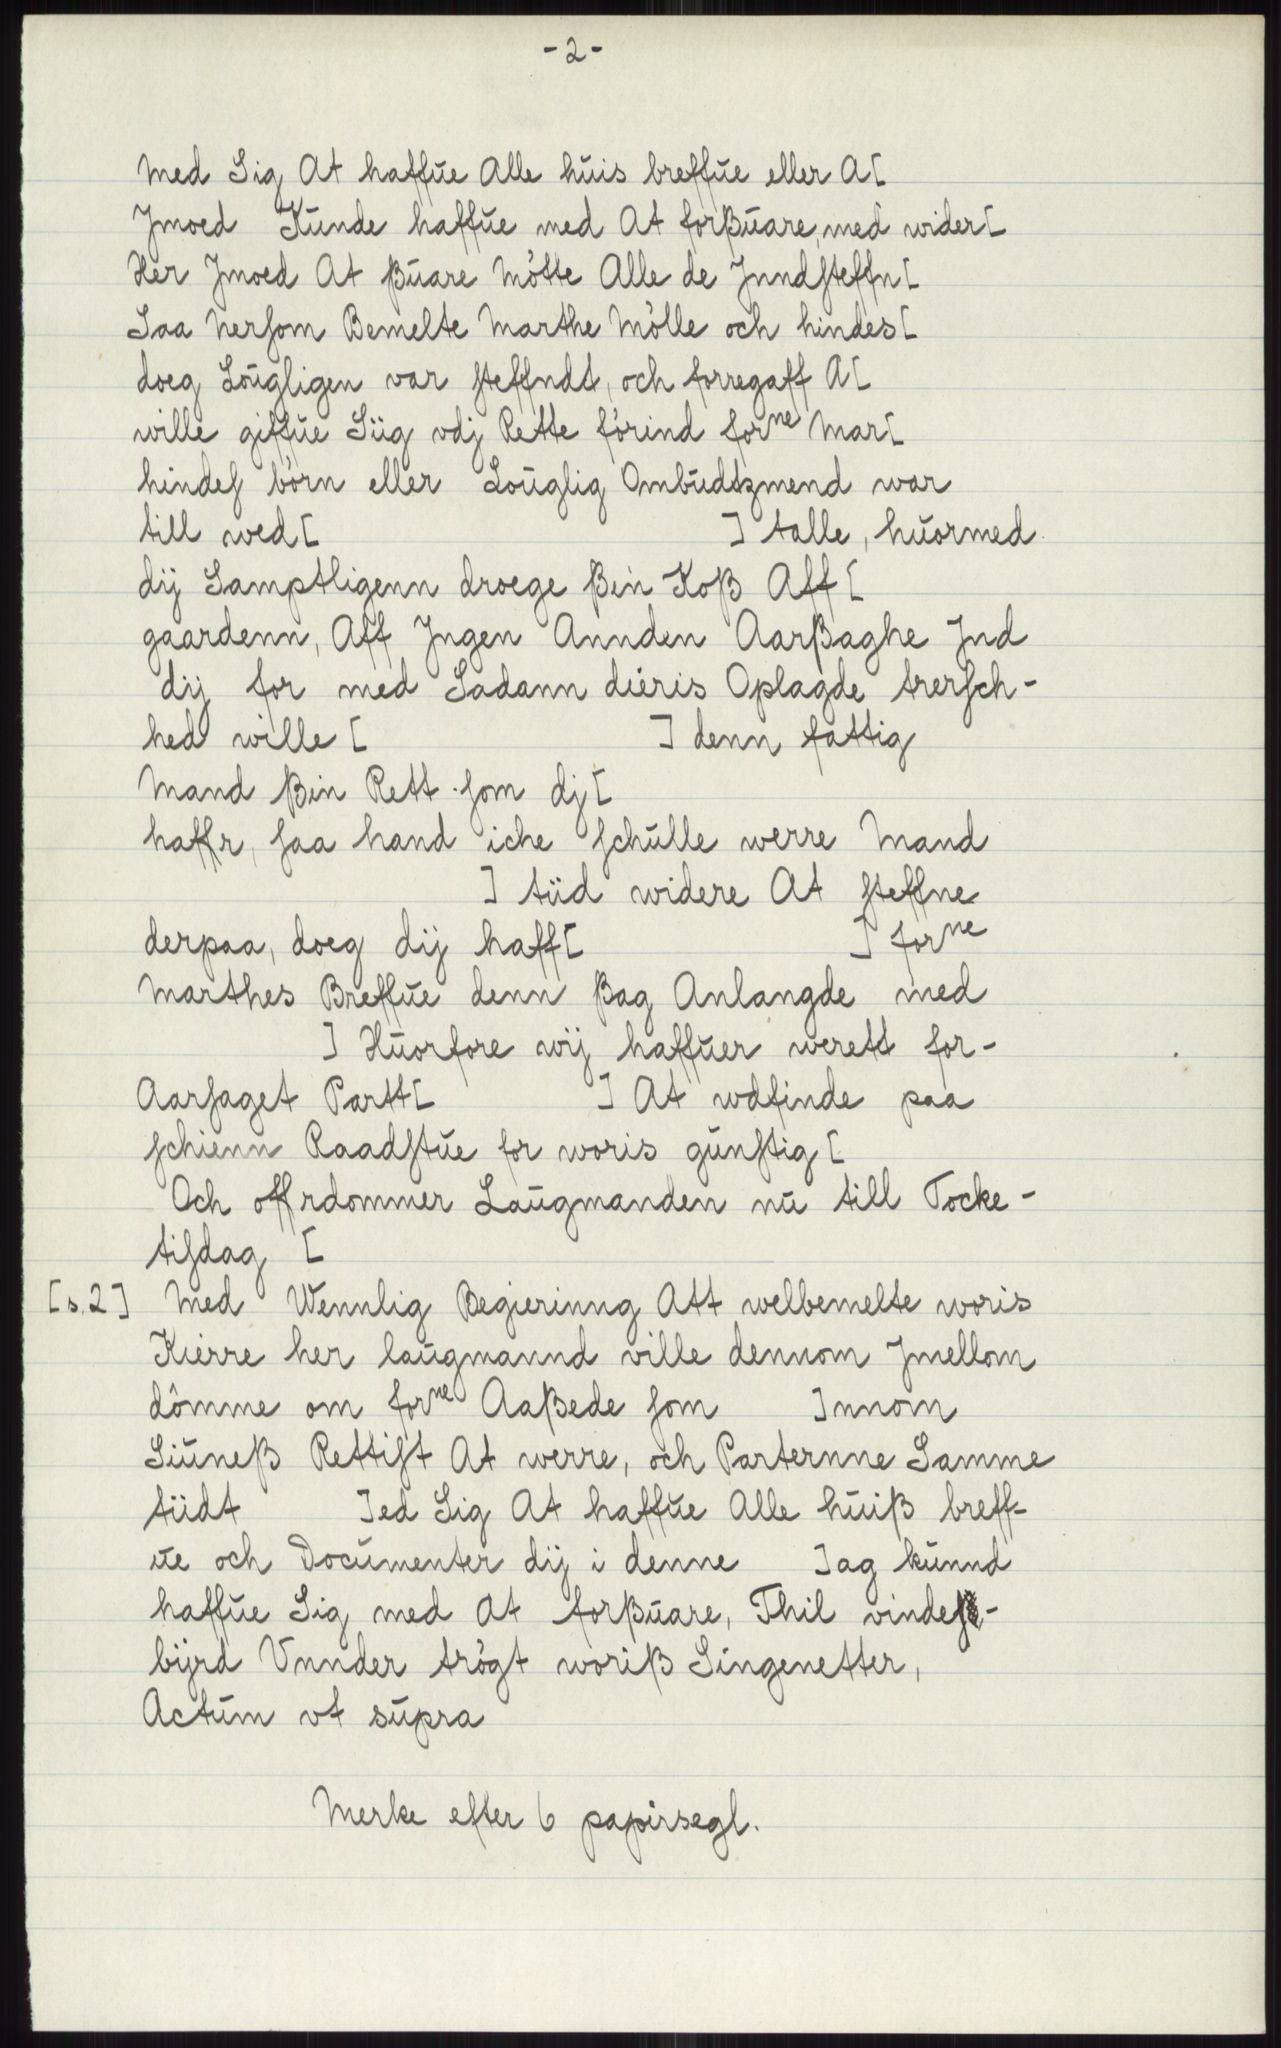 -2-
Med Sig At haffue Alle huis breffue eller A[
Jmoed Kunde haffue med At forßuare, med wider[
Her Jmoed At ßuare Mötte Alle de Jnndſteffn[
Saa Nerſom Bemelte Marthe Mölle och hindes[
doeg Lougligen var ſteffndt, och forregaff A[
wille giffue Siig vdj Rette förind forne Mar[
hindeſ börn eller Louglig Ombudtzmend war
till wed[ ] talle, huormed
dij Samptligenn droege ßein Koß Aff[
gaardenn, Aff Jngen Annden Aarßaghe Jnd
dij for med Sadann diéris Oplagde trerſch-
hed wille [ ] denn fattig
Mand ßin Rett ſom dj[
haffr, ſaa hand iche ſchulle werre Mand
] tiid widere At ſteffne
derpaa, doeg dij haff[ ] forne
Marthes Breffue denn ßag Anlangde med
] Huorfore wij haffuer werett for-
Aarſaget Partt[ ] At wdfinde paa
ſchienn Raadſtue for woris gunſtig[
Och offrdommer Laugmanden nu till Tocke-
tiſdag [
[s. 2] Med Wennlig Begierinng Att welbemelte woris
Kierre her laugmannd ville dennom Jmellom
dömme om forne Aaßede ſom ]nnom
Siuneß Rettiſt At werre, och Parternne Samme
tiidt ]ed Sig At haffue Alle huiß breff-
ue och Documenter dij i denne ]ag kunnd
haffue Sig med At forßuare, Thil vindeſ-
bijrd Vnnder trögt woriß Singenetter,
Actum vt supra
Merke efter 6 papirsegl.